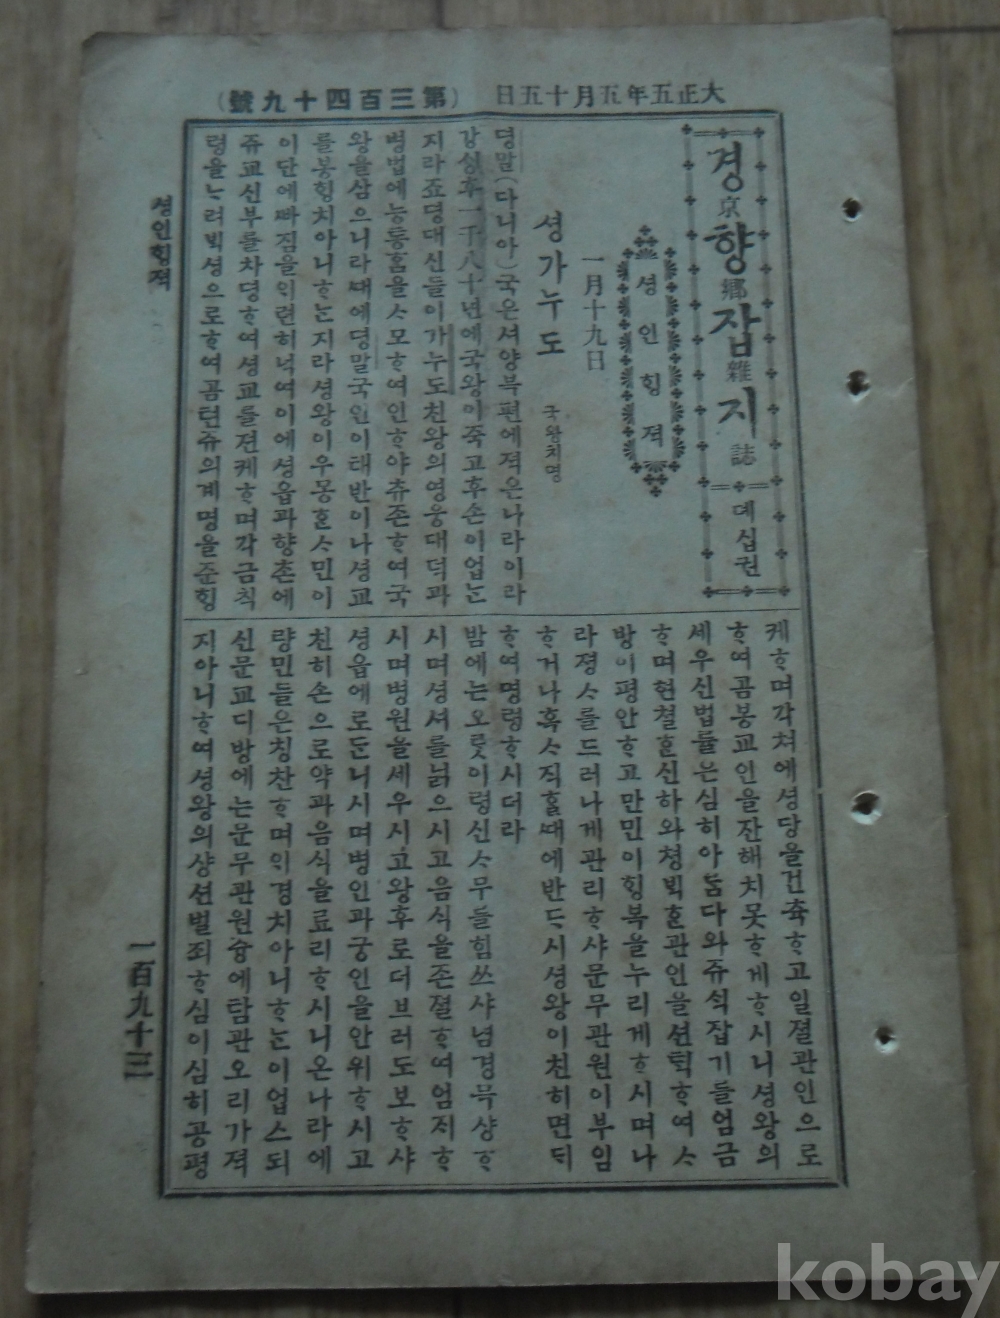 大正五年五月十五日
(第三百四十九號)
경향잡지
京鄕雜誌
뎨십권
셩인힝젹
一月十九日
셩가누도
국왕치명
뎡말(다니아)국은셔양북편에젹은나라이라
강싱후一千八十년에국왕이죽고후손이업ᄂᆞᆫ
지라죠뎡대신들이가누도친왕의영웅대덕과
병법에능통홈을ᄉᆞ모ᄒᆞ여인ᄒᆞ야츄존ᄒᆞ여국
왕을삼으니라ᄯᅢ에뎡말국인이태반이나셩교
를봉힝치아니ᄒᆞᄂᆞᆫ지라셩왕이우몽ᄒᆞᆫᄉᆞ민이
이단에ᄲᅡ짐을이련히넉여이에셩읍과향촌에
쥬교신부를차뎡ᄒᆞ여셩교를젼케ᄒᆞ며각금칙
령을ᄂᆞ려ᄇᆡᆨ셩으로ᄒᆞ여곰텬쥬의계명을준힝
케ᄒᆞ며각쳐에셩당을건츅ᄒᆞ고일졀관인으로
ᄒᆞ여곰봉교인을잔해치못ᄒᆞ게ᄒᆞ시니셩왕의
세우신법률은심히아ᄅᆞᆷ다와쥬식잡기들엄금
ᄒᆞ며현철ᄒᆞᆫ신하와쳥ᄇᆡᆨᄒᆞᆫ관인을션ᄐᆡᆨᄒᆞ여ᄉᆞ
방이평안ᄒᆞ고만민이힝복을누리게ᄒᆞ시며나
라졍ᄉᆞ를드러나게관리ᄒᆞ샤문무관원이부임
ᄒᆞ거나혹ᄉᆞ직ᄒᆞᆯᄯᅢ에반ᄃᆞ시셩왕이친히면ᄃᆡ
ᄒᆞ여명령ᄒᆞ시더라
밤에는오롯이령신ᄉᆞ무들힘쓰샤념경믁샹ᄒᆞ
시며셩셔를닑으시고음식을존졀ᄒᆞ여엄지ᄒᆞ
시며병원을세우시고왕후로더브러도보ᄒᆞ샤
셩읍에로ᄃᆞᆫ니시며병인과궁인을안위ᄒᆞ시고
친히손으로약과음식을료리ᄒᆞ시니온나라에
량민들은칭찬ᄒᆞ며의경치아니ᄒᆞᄂᆞᆫ이업스되
신문교디방에는문무관원즁에탐관오리가젹
지아니ᄒᆞ여셩왕의샹션벌죄ᄒᆞ심이심히공평
셩인힝젹
一百九十三
kobay